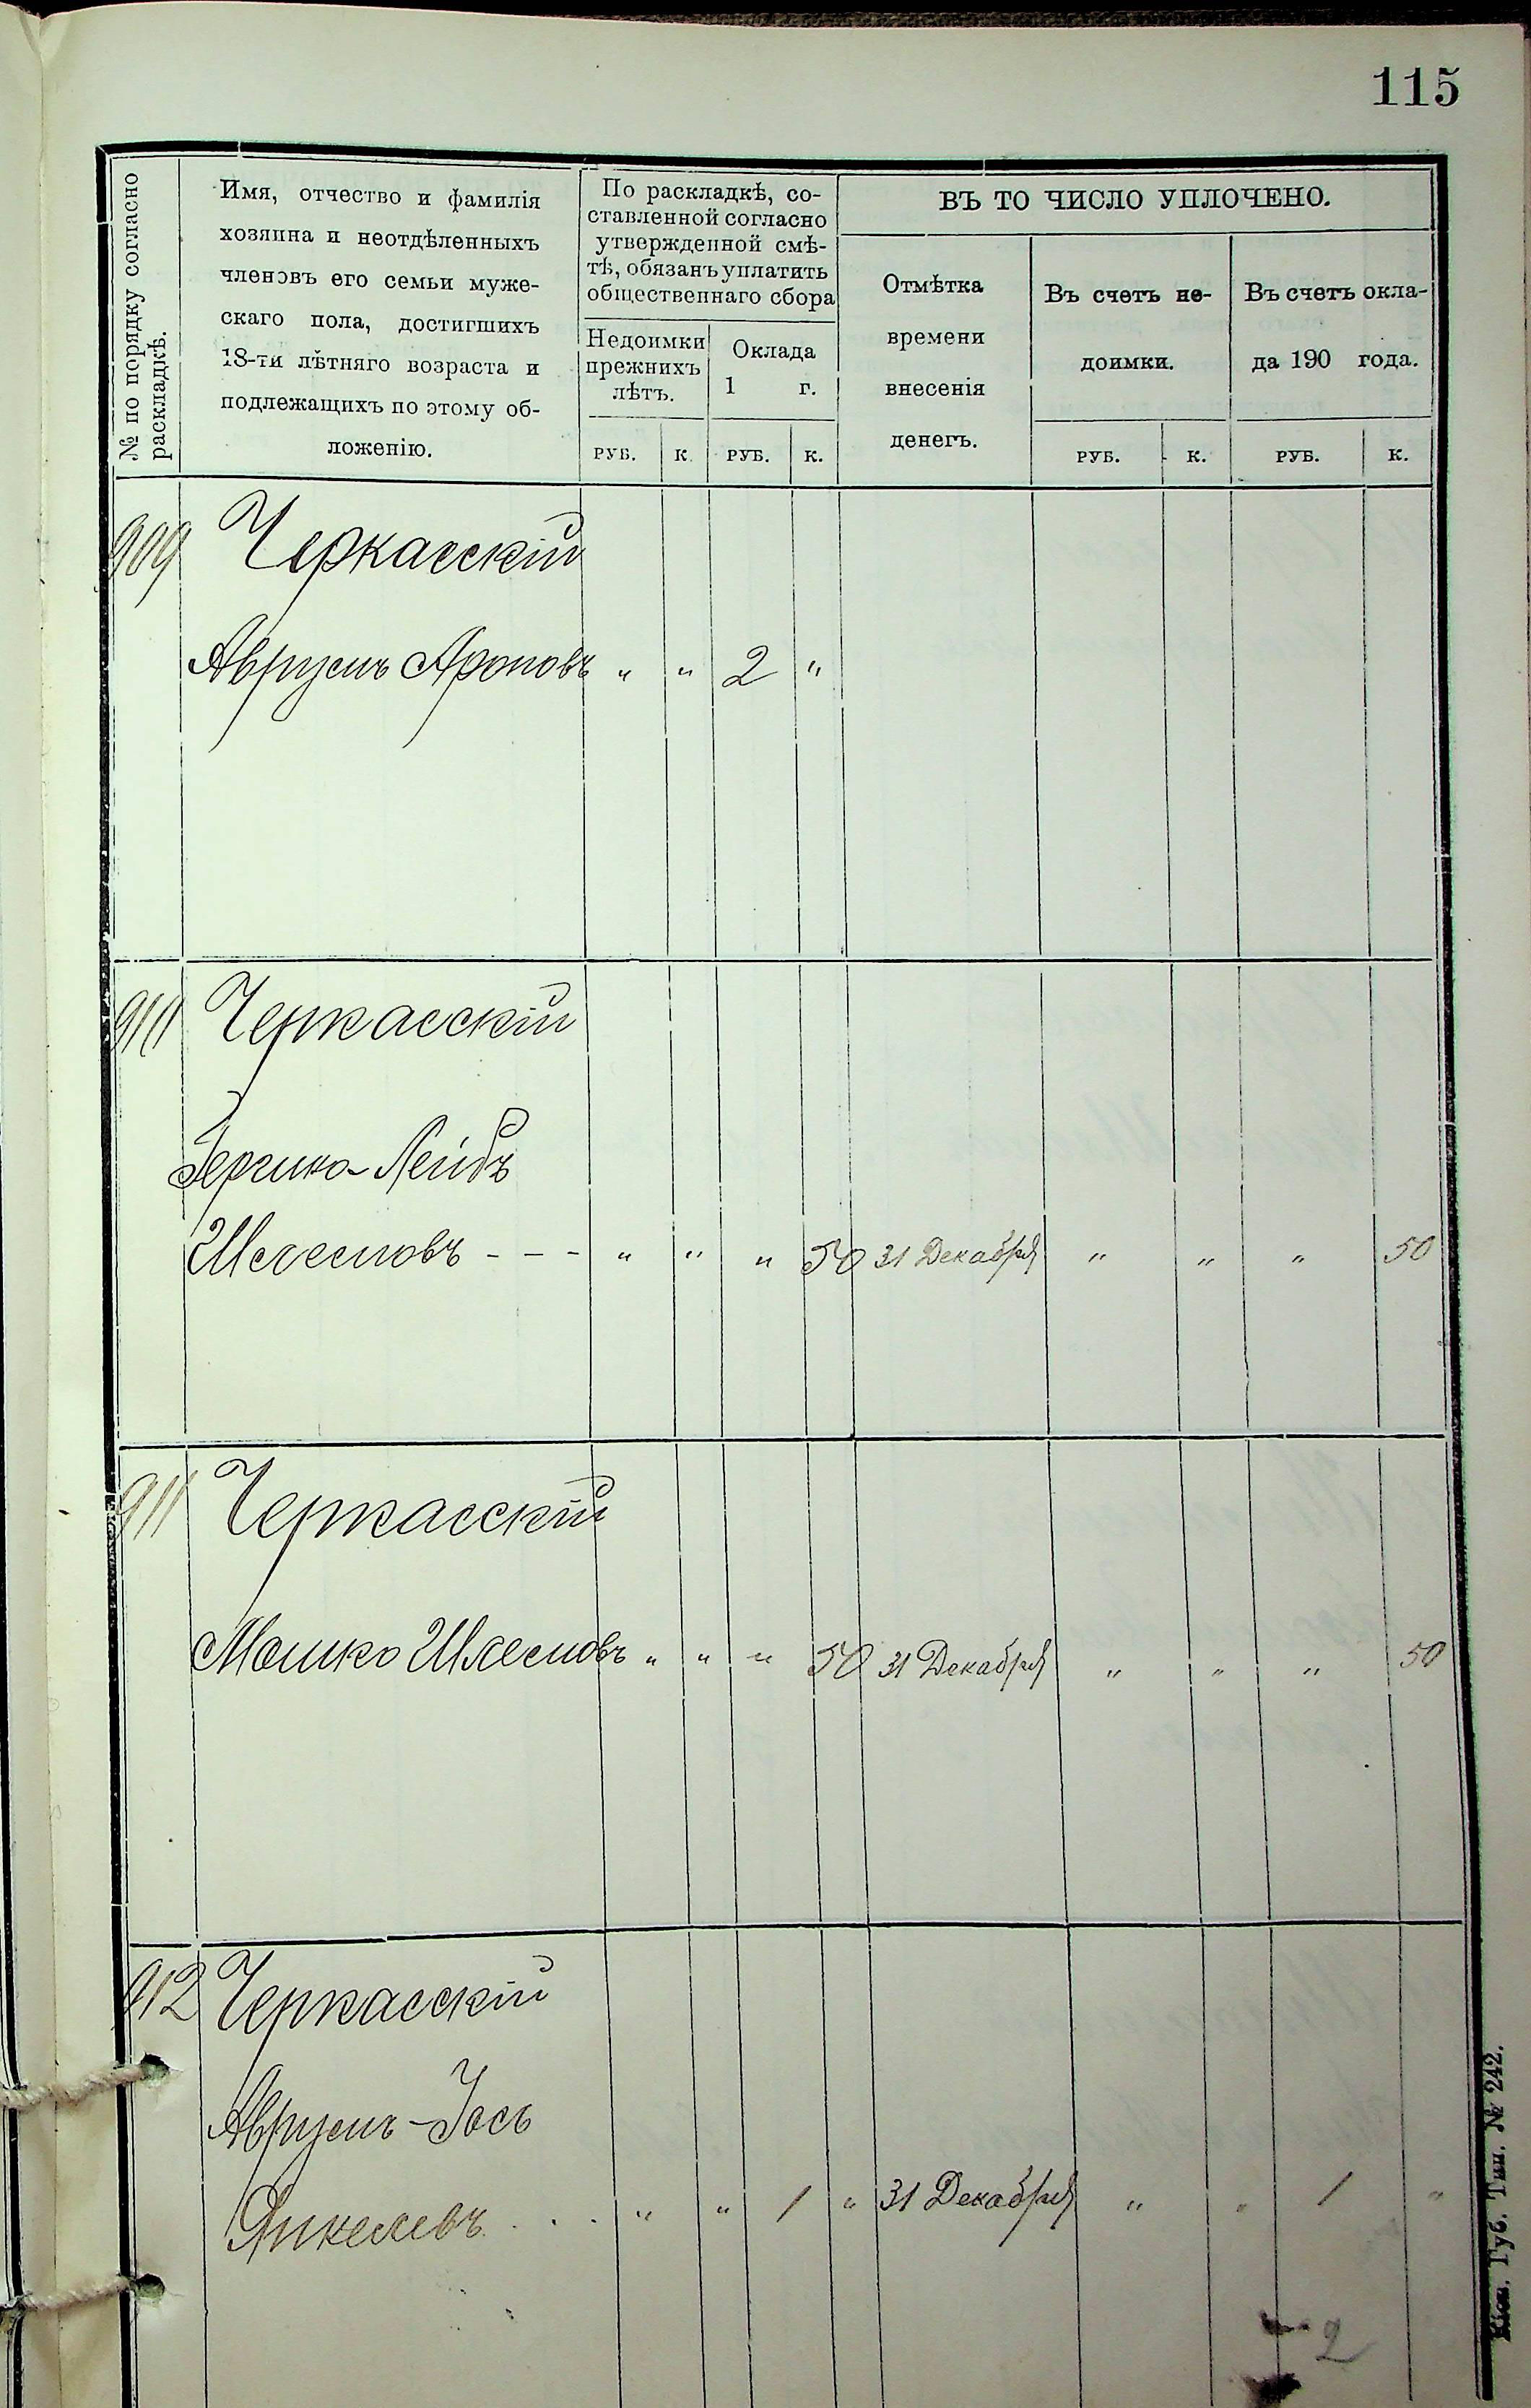 115
№ по порядку согласно
раскладкѣ.
Имя, отчество и фамилія
хозяина и неотдѣленныхъ
членовъ его семьи муже-
скаго пола, достигшихъ
18-ти лѣтняго возраста и
подлежащихъ по этому об-
ложенію.
По раскладкѣ, со-
ставленной согласно
утвержденной смѣ-
тѣ, обязанъ уплатить
общественнаго сбора
Недоимки
прежнихъ
лѣтъ.
Оклада
1 г.
ВЪ ТО ЧИСЛО УПЛОЧЕНО.
Отмѣтка
времени
внесенія
денегъ.
Въ счетъ не-
доимки.
Въ счетъ окла-
да 190 года.
РУБ. К. РУБ. К. РУБ. К. РУБ. К.
909 Черкасскій
Аврумъ Ароновъ " " 2 "
910 Черкасскій
Лейбъ
Шлемовъ - - - " " " 50 31 Декабря " " " 50
911 Черкасскій
Мошко Шлемовъ " " " 50 31 Декабря " " " 50
912 Черкасскій
Аврумъ-Іось
Янкелевъ . . . " " 1 " 31 Декабря " " 1 "
2
Кіев. Губ. Тип. № 242.